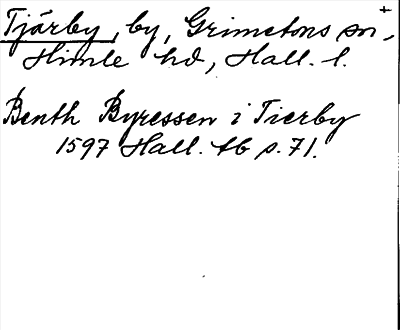 Tjärby, by, Grimetons sn, +
Himle hd, Hall. l.
Benth Byressen i Tierby
1597 Hall. tb p. 71.